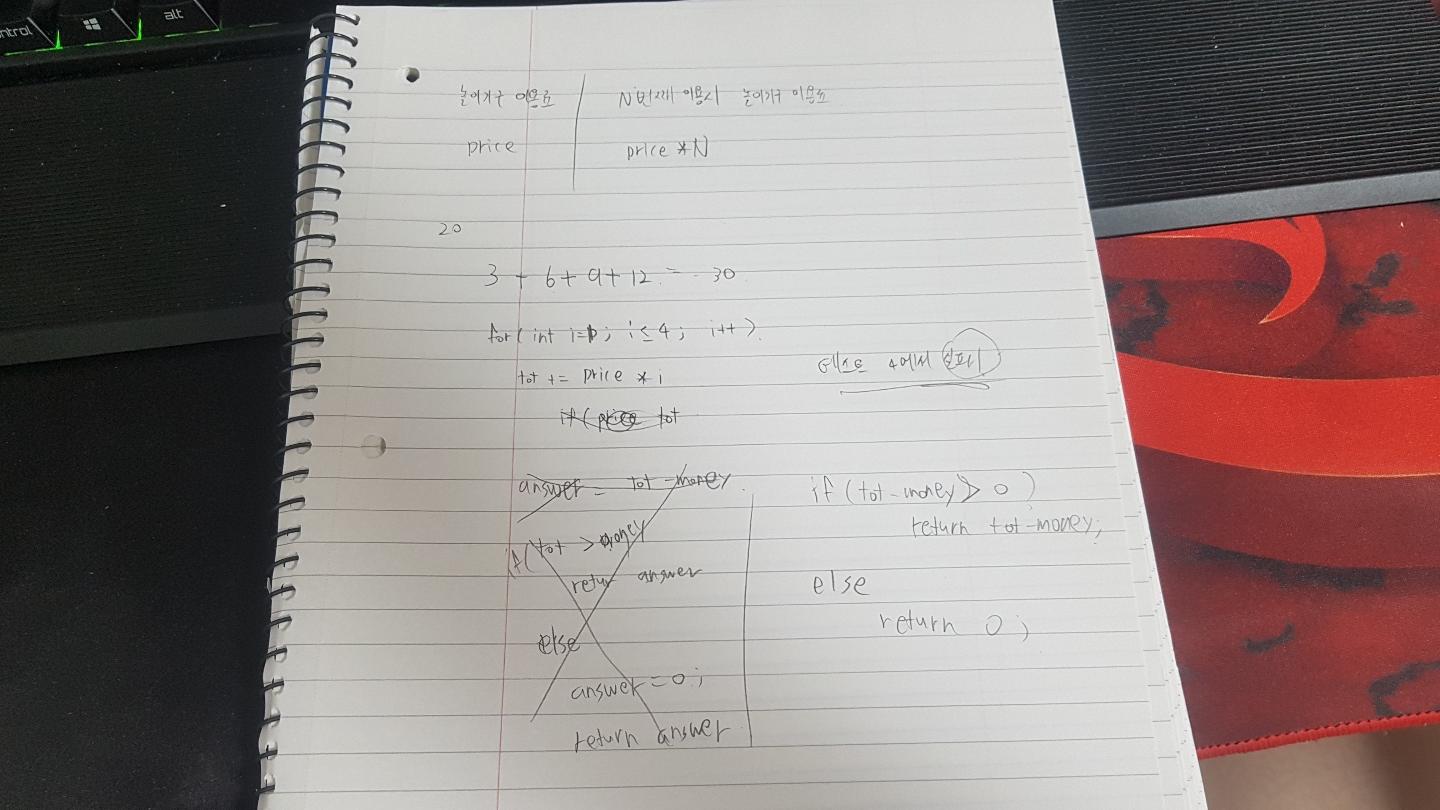 ntrol
alt
놀이기구 이용료
N번째 이용시 놀이기구 이용료
price
price * N
20
3 + 6 + 9 + 12 = 30
for( int i=1; i ≤ 4; i++ )
tot += price * i
테스트 4에서 실패!
if( price tot
answer = tot - money
if( tot > money
retur answer
else
answer = 0;
return answer
if (tot - money > 0 )
return tot - money;
else
return 0;